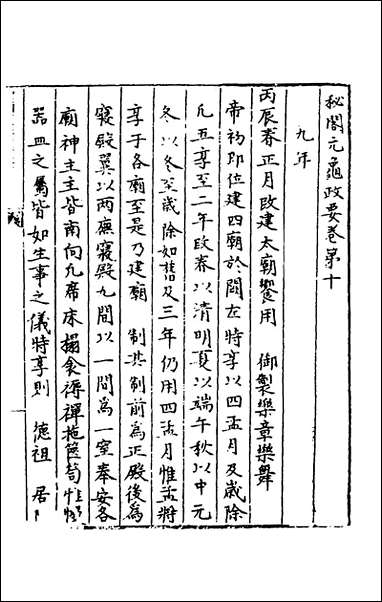 秘閣元龜政要卷第十
九年
丙辰春正月改建太廟饗用 御製樂章樂舞
帝初即位建四廟於闕左時享以四孟月及歲除
凡五享至二年改春以清明夏以端午秋以中元
冬以冬至歲除如舊及三年仍用四孟月惟孟將
享于各廟至是乃建廟 制其制前為正殿後為
寢殿翼以兩廡寢殿九間以一間為一室奉安各
廟神主主皆南向几席床榻衾褥禪椸篋笥帷幄
器皿之屬皆如生事之儀時享則 德祖 居